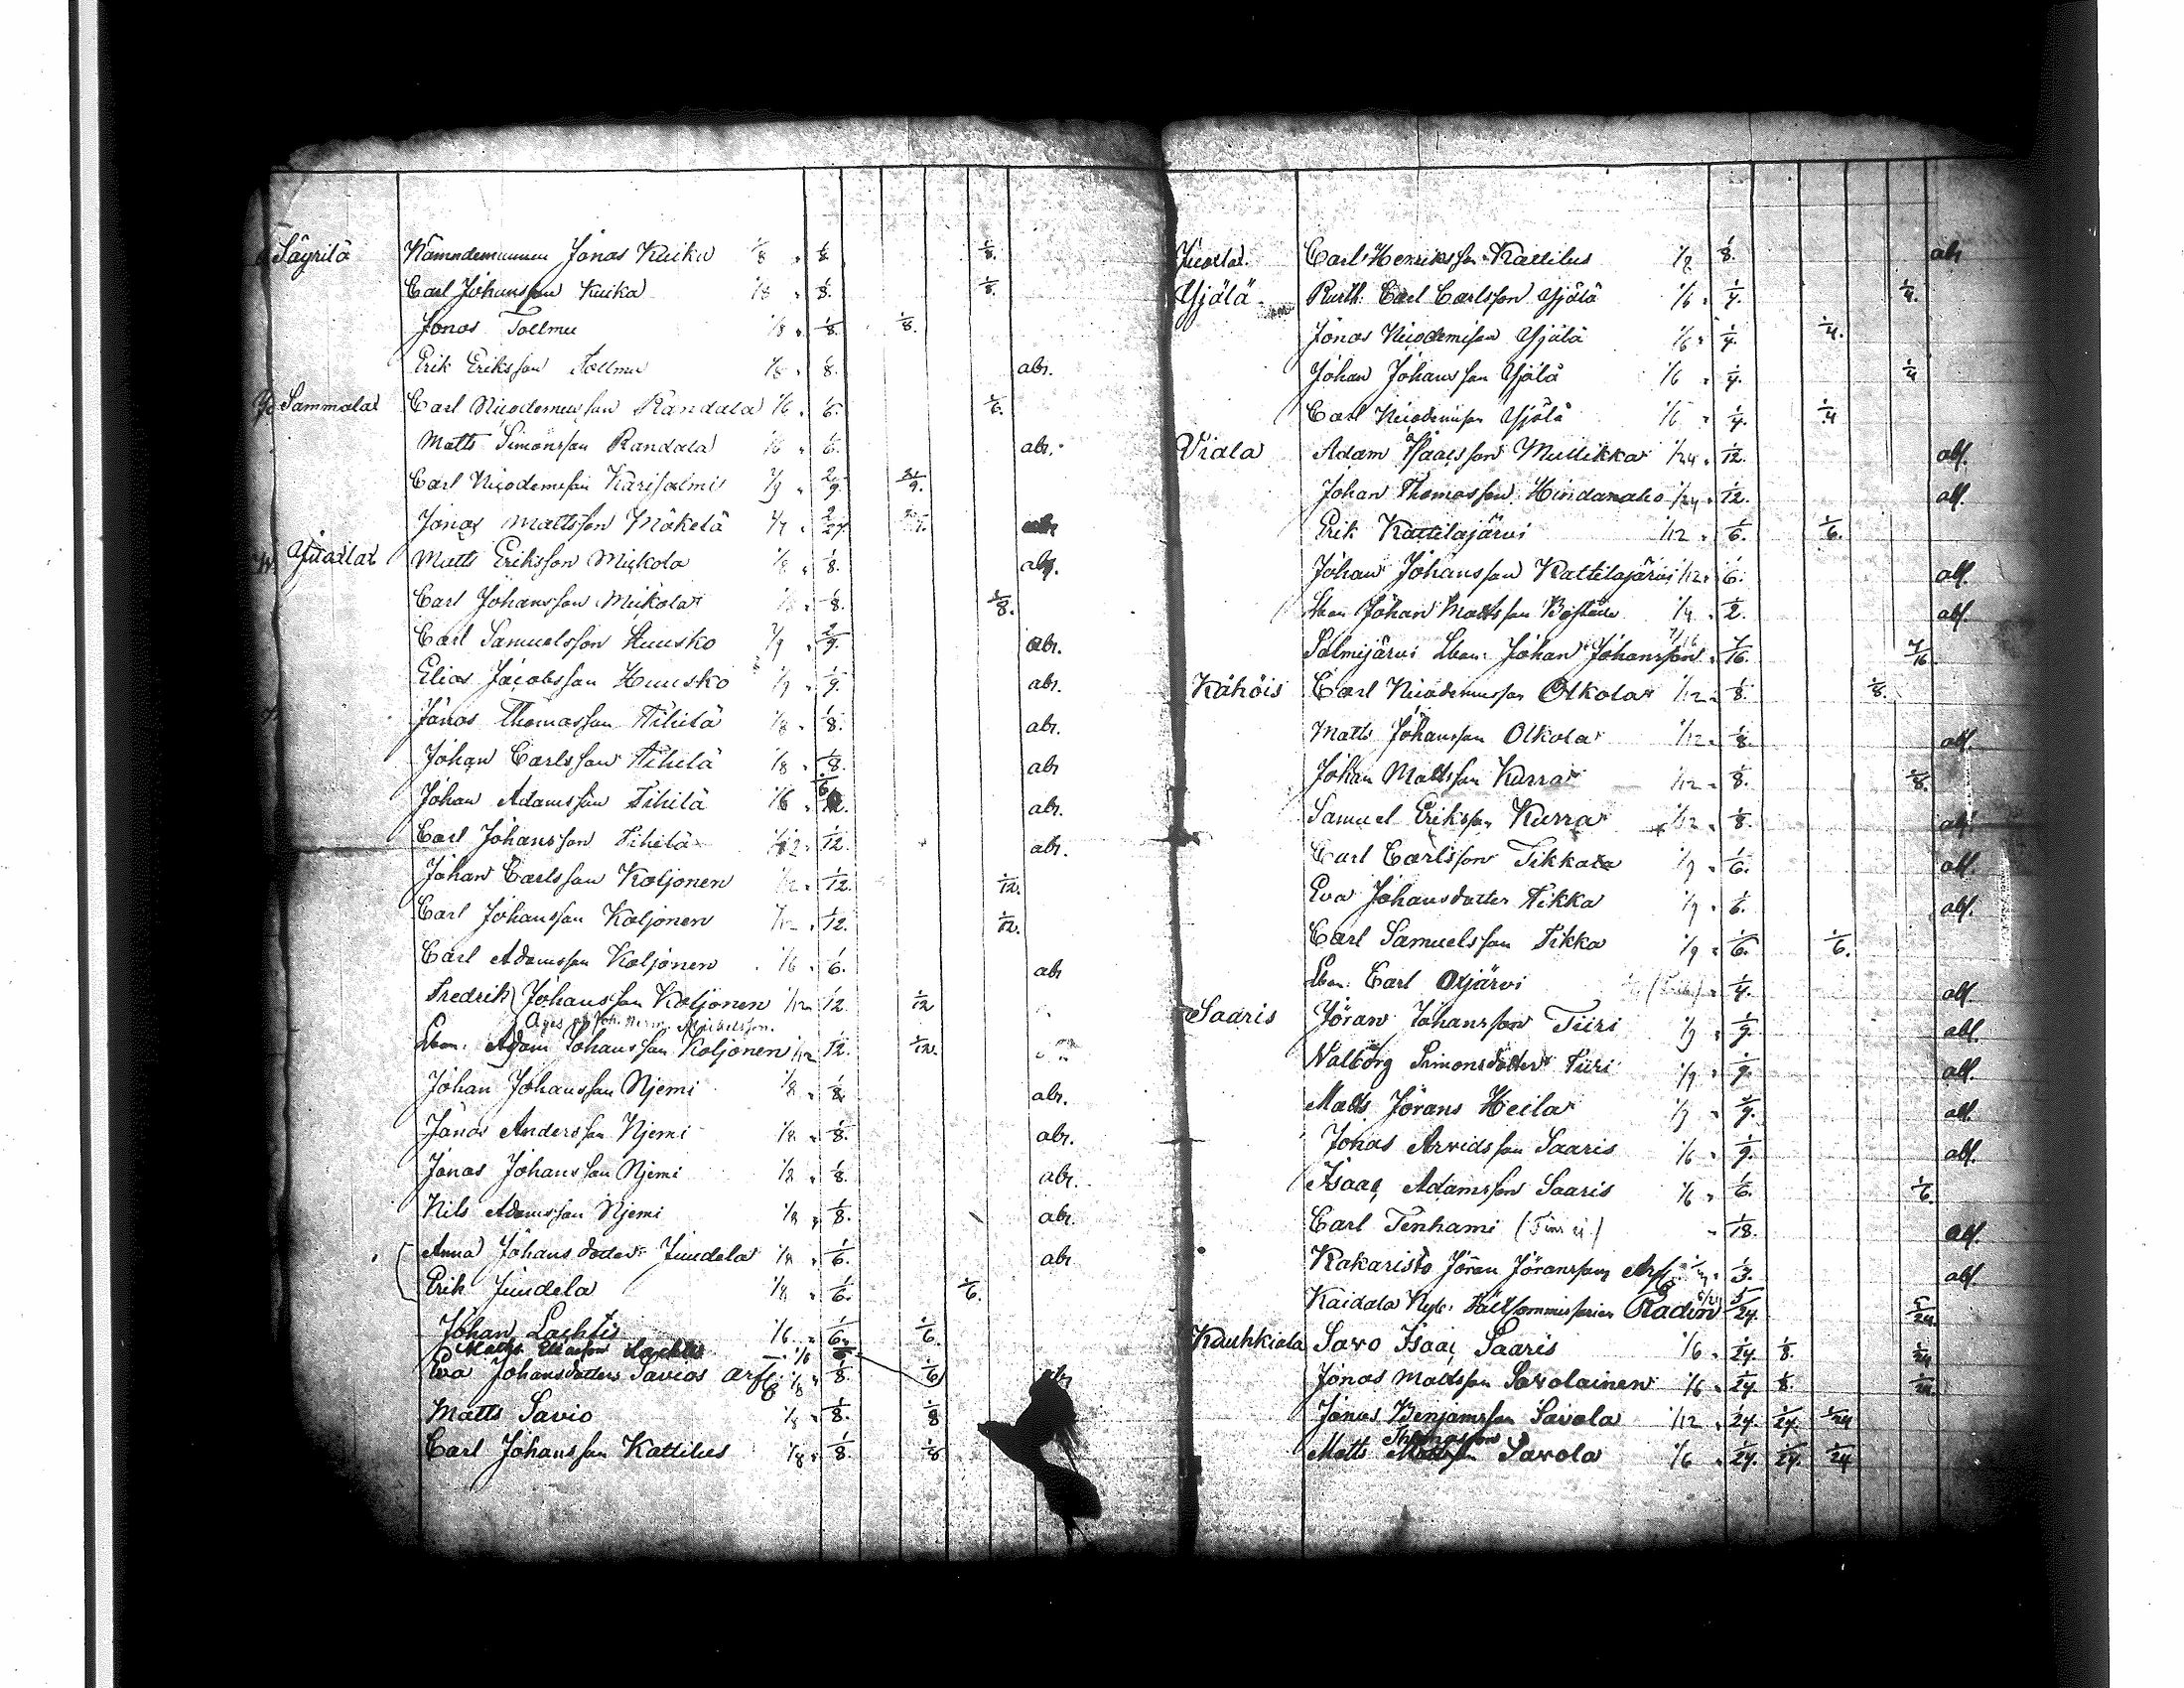 Säyrilä Nämndemannen Jonas Kuika 1/8 " 1/8. 1/8.
Carl Johansson Kuika 1/8 " 1/8. 1/8.
Jonas Tollmu 1/8 " 1/8. 1/8.
Erik Eriksson Tollmu 1/8 " 1/8. abs.
Sammala Carl Nicodemusson Randala 1/6 " 1/6. 1/6.
Matts Simonsson Randala 1/6 " 1/6. abs.
Carl Nicodemson Karisalmi 2/9 " 2/9. 2/9.
Jonas Mattsson Mäkelä " 2/27.
Matts Eriksson Mickola 1/8 " 1/8. abs.
Carl Johansson Mickola 1/8 " 1/8. 1/8.
Carl Samuelsson Huusko 2/9 " 2/9. abs.
Elias Jacobsson Huusko 1/9 " 1/9. abs.
Jonas Thomasson Tihilä 1/8 " 1/8. abs.
Johan Carlsson Tihilä 1/8 " 1/8. abs
Johan Adamsson Tihilä 1/6 " 1/6 abs.
Carl Johansson Tihilä 1/12 " 1/12. abs.
Johan Carlsson Koljonen 1/12 " 1/12. 1/12.
Carl Johansson Koljonen 1/12 " 1/12. 1/12.
Carl Adamsson Koljonen 1/6 " 1/6. abs
Fredrik Johansson Koljonen 1/12 " 1/12 1/12
Äges af Joh. Herm. Mickelsson.
Lbon. Adam Johansson Koljonen 1/12 1/12. 1/12.
Johan Johansson Njemi 1/8 " 1/8. abs.
Jonas Andersson Njemi 1/8 " 1/8. abs.
Jonas Johansson Njemi 1/8 " 1/8. abs.
Nils Adamsson Njemi 1/8 " 1/8. abs.
Anna Johansdotter Juudela 1/8 " 1/6. abs
Erik Juudela 1/8 " 1/6. 1/6.
Johan Lachtis 1/6 " 1/6. 1/6.
Matts Lachtis 1/6
Eva Johansdotters Savios arfg. 1/8 " 1/8. 1/6
Matts Savio 1/8 " 1/8. 1/8
Carl Johansson Kattilus 1/8 " 1/8. 1/8
Carl Henriksson Kattilus 1/8 1/8. abs
Yjälä Rusth. Carl Carlsson Yjälä 1/6 " 1/4. 1/4.
Jonas Nicodemson Yjälä 1/6 " 1/4. 1/4.
Johan Johansson Yjälä 1/6 " 1/4. 1/4
Carl Nicodemson Yjälä 1/6 " 1/4. 1/4
Viala Adam Isaacsson Mullikka 1/24 " 1/12. abs.
Johan Thomasson Hindanaho 1/24 " 1/12. abs.
Erik Kattilajärvi 1/12 " 1/6. 1/6.
Johan Johansson Kattilajärvi 1/12 " 1/6. abs.
Johan Mattsson 1/4 " 1/2. abs.
Salmijärvi Lbon. Johan Johansson 7/16 " 7/16. 7/16.
Kähöis Carl Nicodemusson Olkola 1/12 " 1/8. 1/8.
Matts Johansson Olkola 1/12 " 1/8. abs.
Johan Mattsson Kurra 1/12 " 1/8. 1/8.
Samuel Eriksson Kurra 1/12 " 1/8. abs.
Carl Carlsson Tikka 1/9 " 1/6. abs.
Eva Johansdotter Tikka 1/9 " 1/6. abs.
Carl Samuelsson Tikka 1/9 " 1/6. 1/6.
Lbon. Carl Oxjärvi " 1/4. abs.
Saaris Jöran Johansson Tiiri 1/9 " 1/9. abs.
Walborg Simonsdotter Tiiri 1/9 " 1/9. abs.
Matts Jörans Heila 1/9 " 1/9. abs.
Jonas Arvidsson Saaris 1/6 " 1/9. abs.
Isaac Adamsson Saaris 1/6 " 1/6. 1/6.
Carl Tenhami " 1/18. abs.
Kakaristo Jöran Jöransson Arfg. " 1/3. abs.
Kaidala Nyb. Fältcommissarien Radin 5/24. 5/24.
Kauhkiala Savo Isaac Saaris 1/6 " 1/24. 1/8. 1/24
Jonas Mattsson Savolainen 1/6 " 1/24. 1/8. 1/24.
Jonas Benjamsson Savola 1/12 " 1/24. 1/24. 1/24
Thomasson
Matts Savola 1/6 " 1/24. 1/24. 1/24